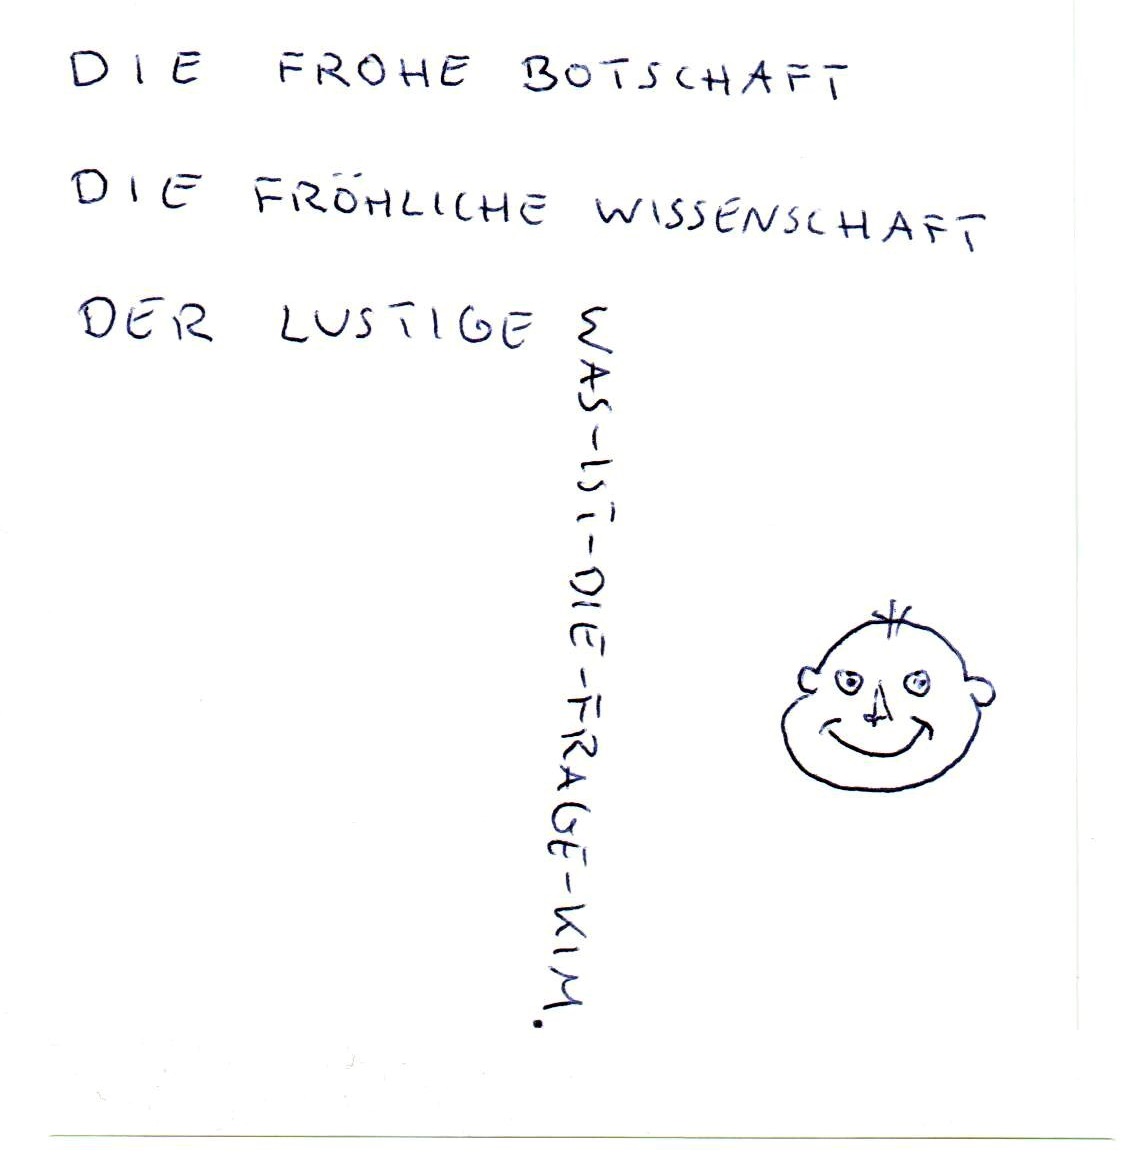 DIE FROHE BOTSCHAFT
DIE FRÖHLICHE WISSENSCHAFT
DER LUSTIGE
WAS-IST-DIE-FRAGE-KIM.